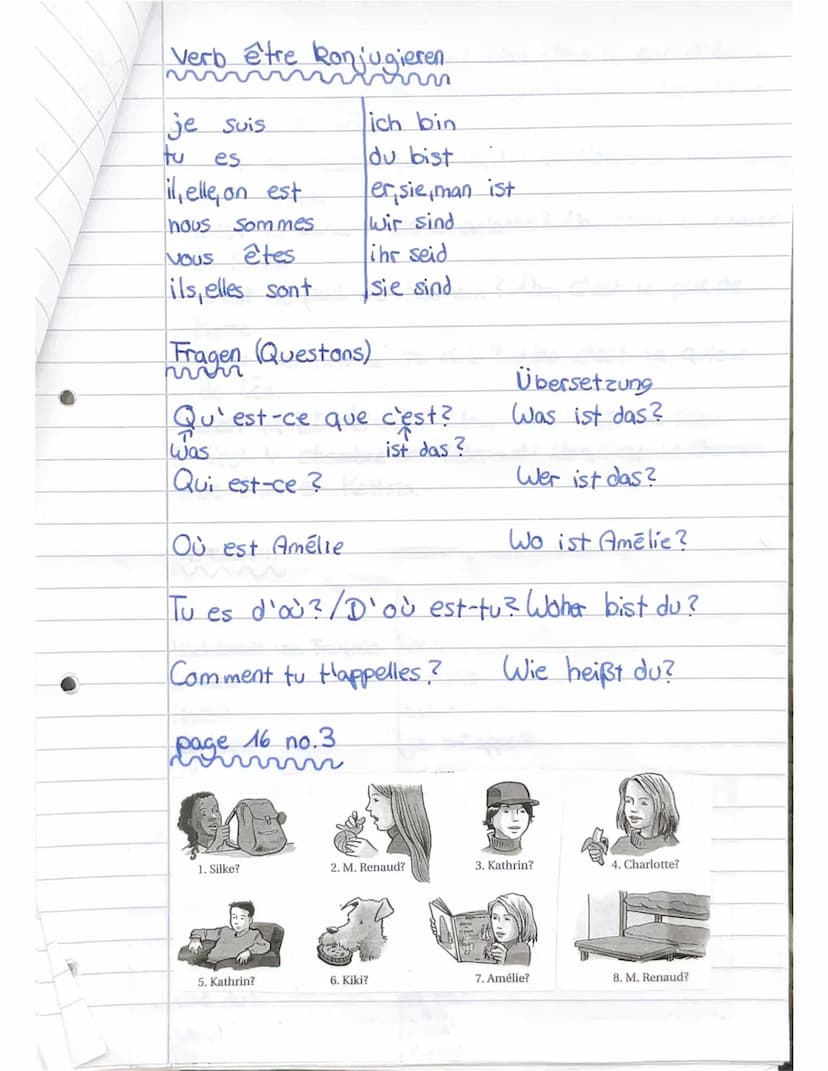 Verb être konjugieren
je suis ich bin
tu es du bist
il, elle, on est er, sie, man ist
nous sommes wir sind
vous êtes ihr seid
ils, elles sont sie sind
Fragen (Questons)
Übersetzung
Qu'est-ce que c'est? Was ist das?
Was ist das?
Qui est-ce? Wer ist das?
Où est Amélie Wo ist Amēlie?
Tu es d'où? / D'où est-tu? Woher bist du?
Comment tu t'appelles? Wie heißt du?
page 16 no.3
1. Silke? 2. M. Renaud? 3. Kathrin? 4. Charlotte?
5. Kathrin? 6. Kiki? 7. Amélie? 8. M. Renaud?